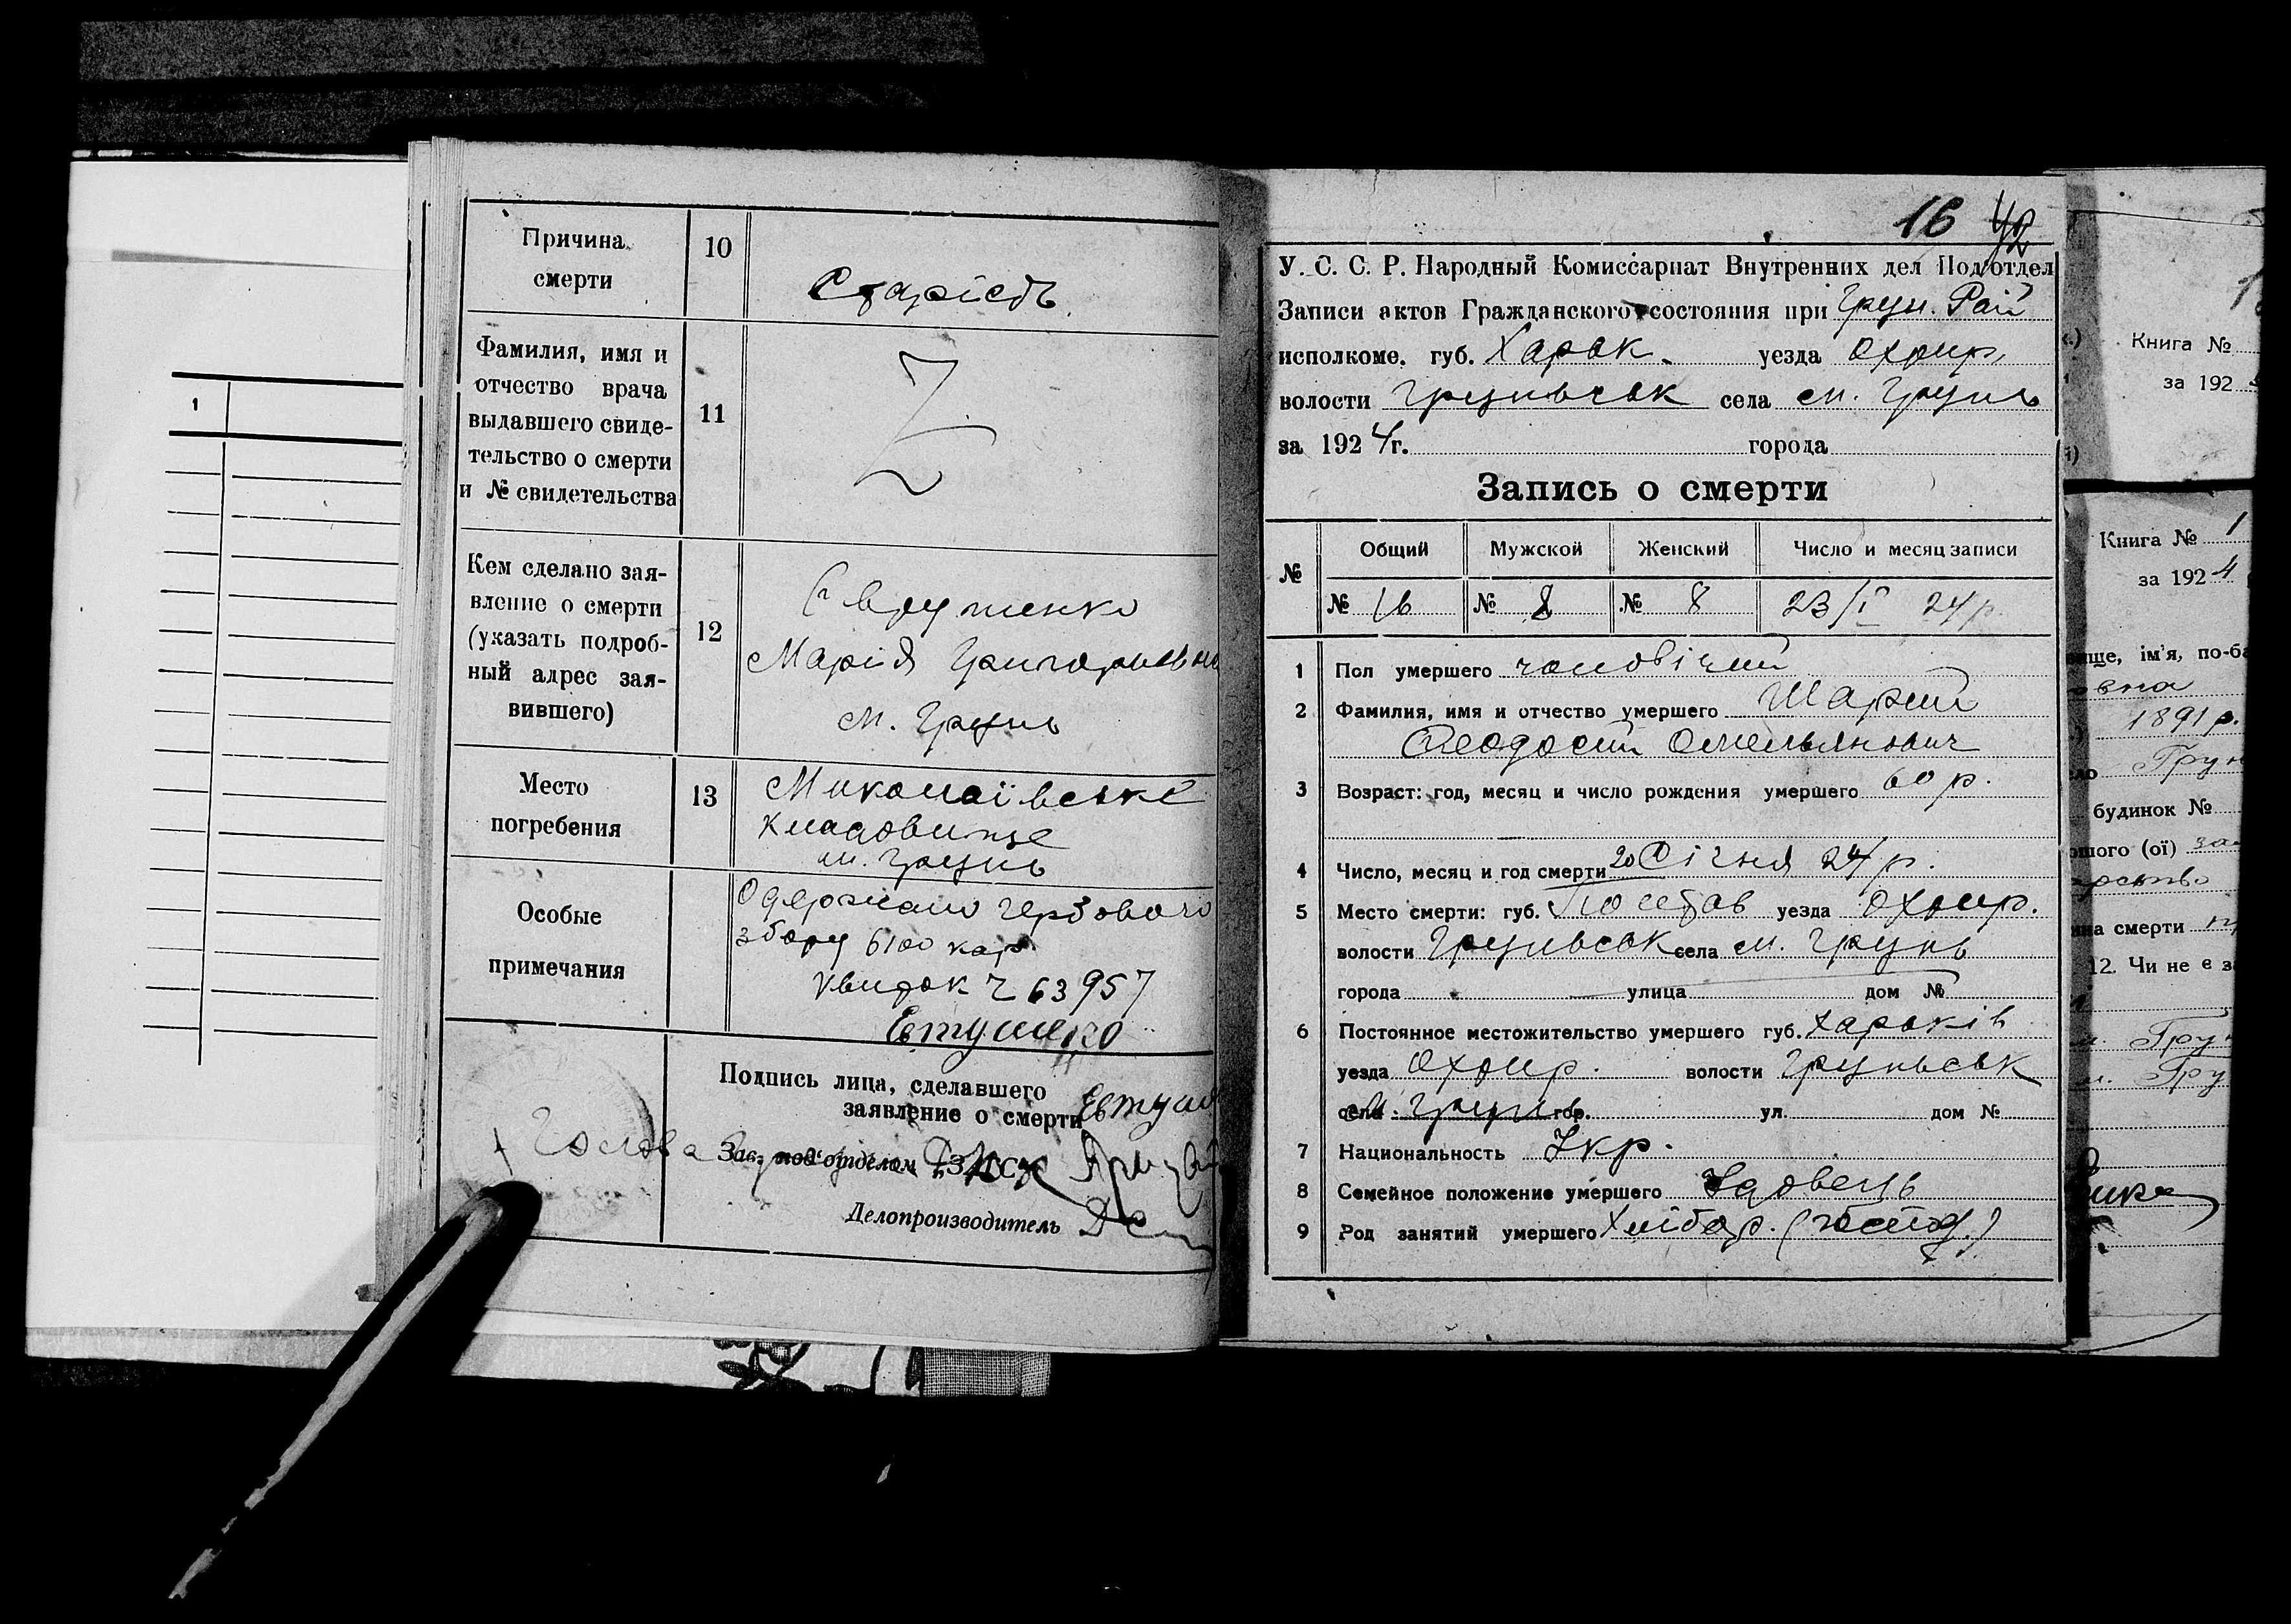 1
Причина
смерти
10
Старість.
Фамилия, имя и
отчество врача
выдавшего свиде-
тельство о смерти
и № свидетельства
11
Кем сделано зая-
вление о смерти
(указать подроб-
ный адрес зая-
вившего)
12
Марія Григорьевна
м. Грунь
Место
погребения
13
Миколаївське
кладовище
м. Грунь
Особые
примечания
Одержано гербового
збору 6100 кар.
квиток Ч 63957
Подпись лица, сделавшего
заявление о смерти
Голова
Зав. под'отделом ЗАГС
Делопроизводитель
16 42
У. С. С. Р. Народный Комиссариат Внутренних дел Под'отдел
Записи актов Гражданского состояния при Грун. Рай
исполкоме. губ. Харьк. уезда Охтир.
волости Груньськ села м. Грунь
за 1924 г. города
Запись о смерти
№ Общий Мужской Женский Число и месяц записи
№ 16 № 8 № 8 23/I 24 р.
1 Пол умершего чоловічий
2 Фамилия, имя и отчество умершего Шарий
Феодосий Омельянович
3 Возраст: год, месяц и число рождения умершего 60 р.
4 Число, месяц и год смерти 20 Січня 24 р.
5 Место смерти: губ. уезда Охтир.
волости Груньськ села м. Грунь
города улица дом №
6 Постоянное местожительство умершего губ. Харьків
уезда Охтир. волости Груньськ
села м. Грунь гор. ул. дом №
7 Национальность Укр.
8 Семейное положение умершего Удовець
9 Род занятий умершего Хлібор.
Книга №
за 192
Книга № 1
за 1924
ім'я, по-ба
овна
1891 р.
Грун
будинок №
ошого (ої)
смерти
12. Чи не є з
Грун
Гру